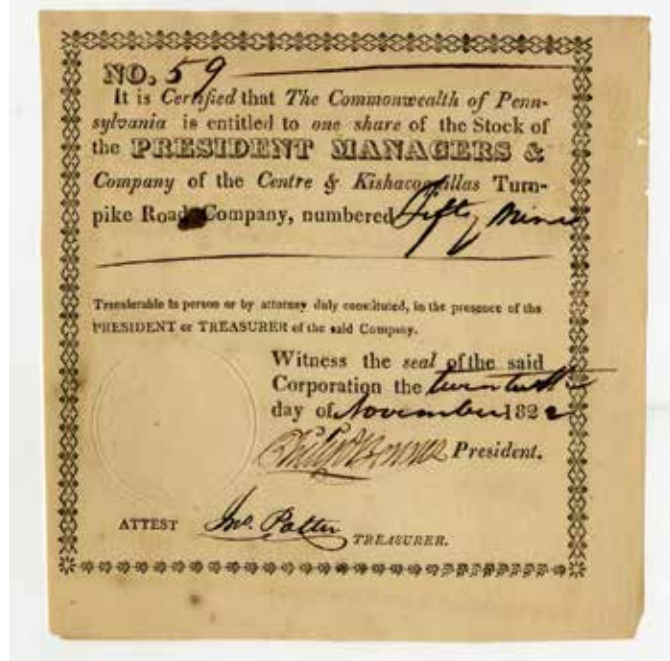 NO. 59
It is Certified that The Commonwealth of Penn-
sylvania is entitled to one share of the Stock of
the PRESIDENT MANAGERS &
Company of the Centre & Kishacoquillas Turn-
pike Road Company, numbered Fifty Nine
Transferable in person or by attorney duly constituted, in the presence of the
PRESIDENT or TREASURER of the said Company.
Witness the seal of the said
Corporation the twentieth
day of November 1822
President.
ATTEST Jno. Potter
TREASURER.